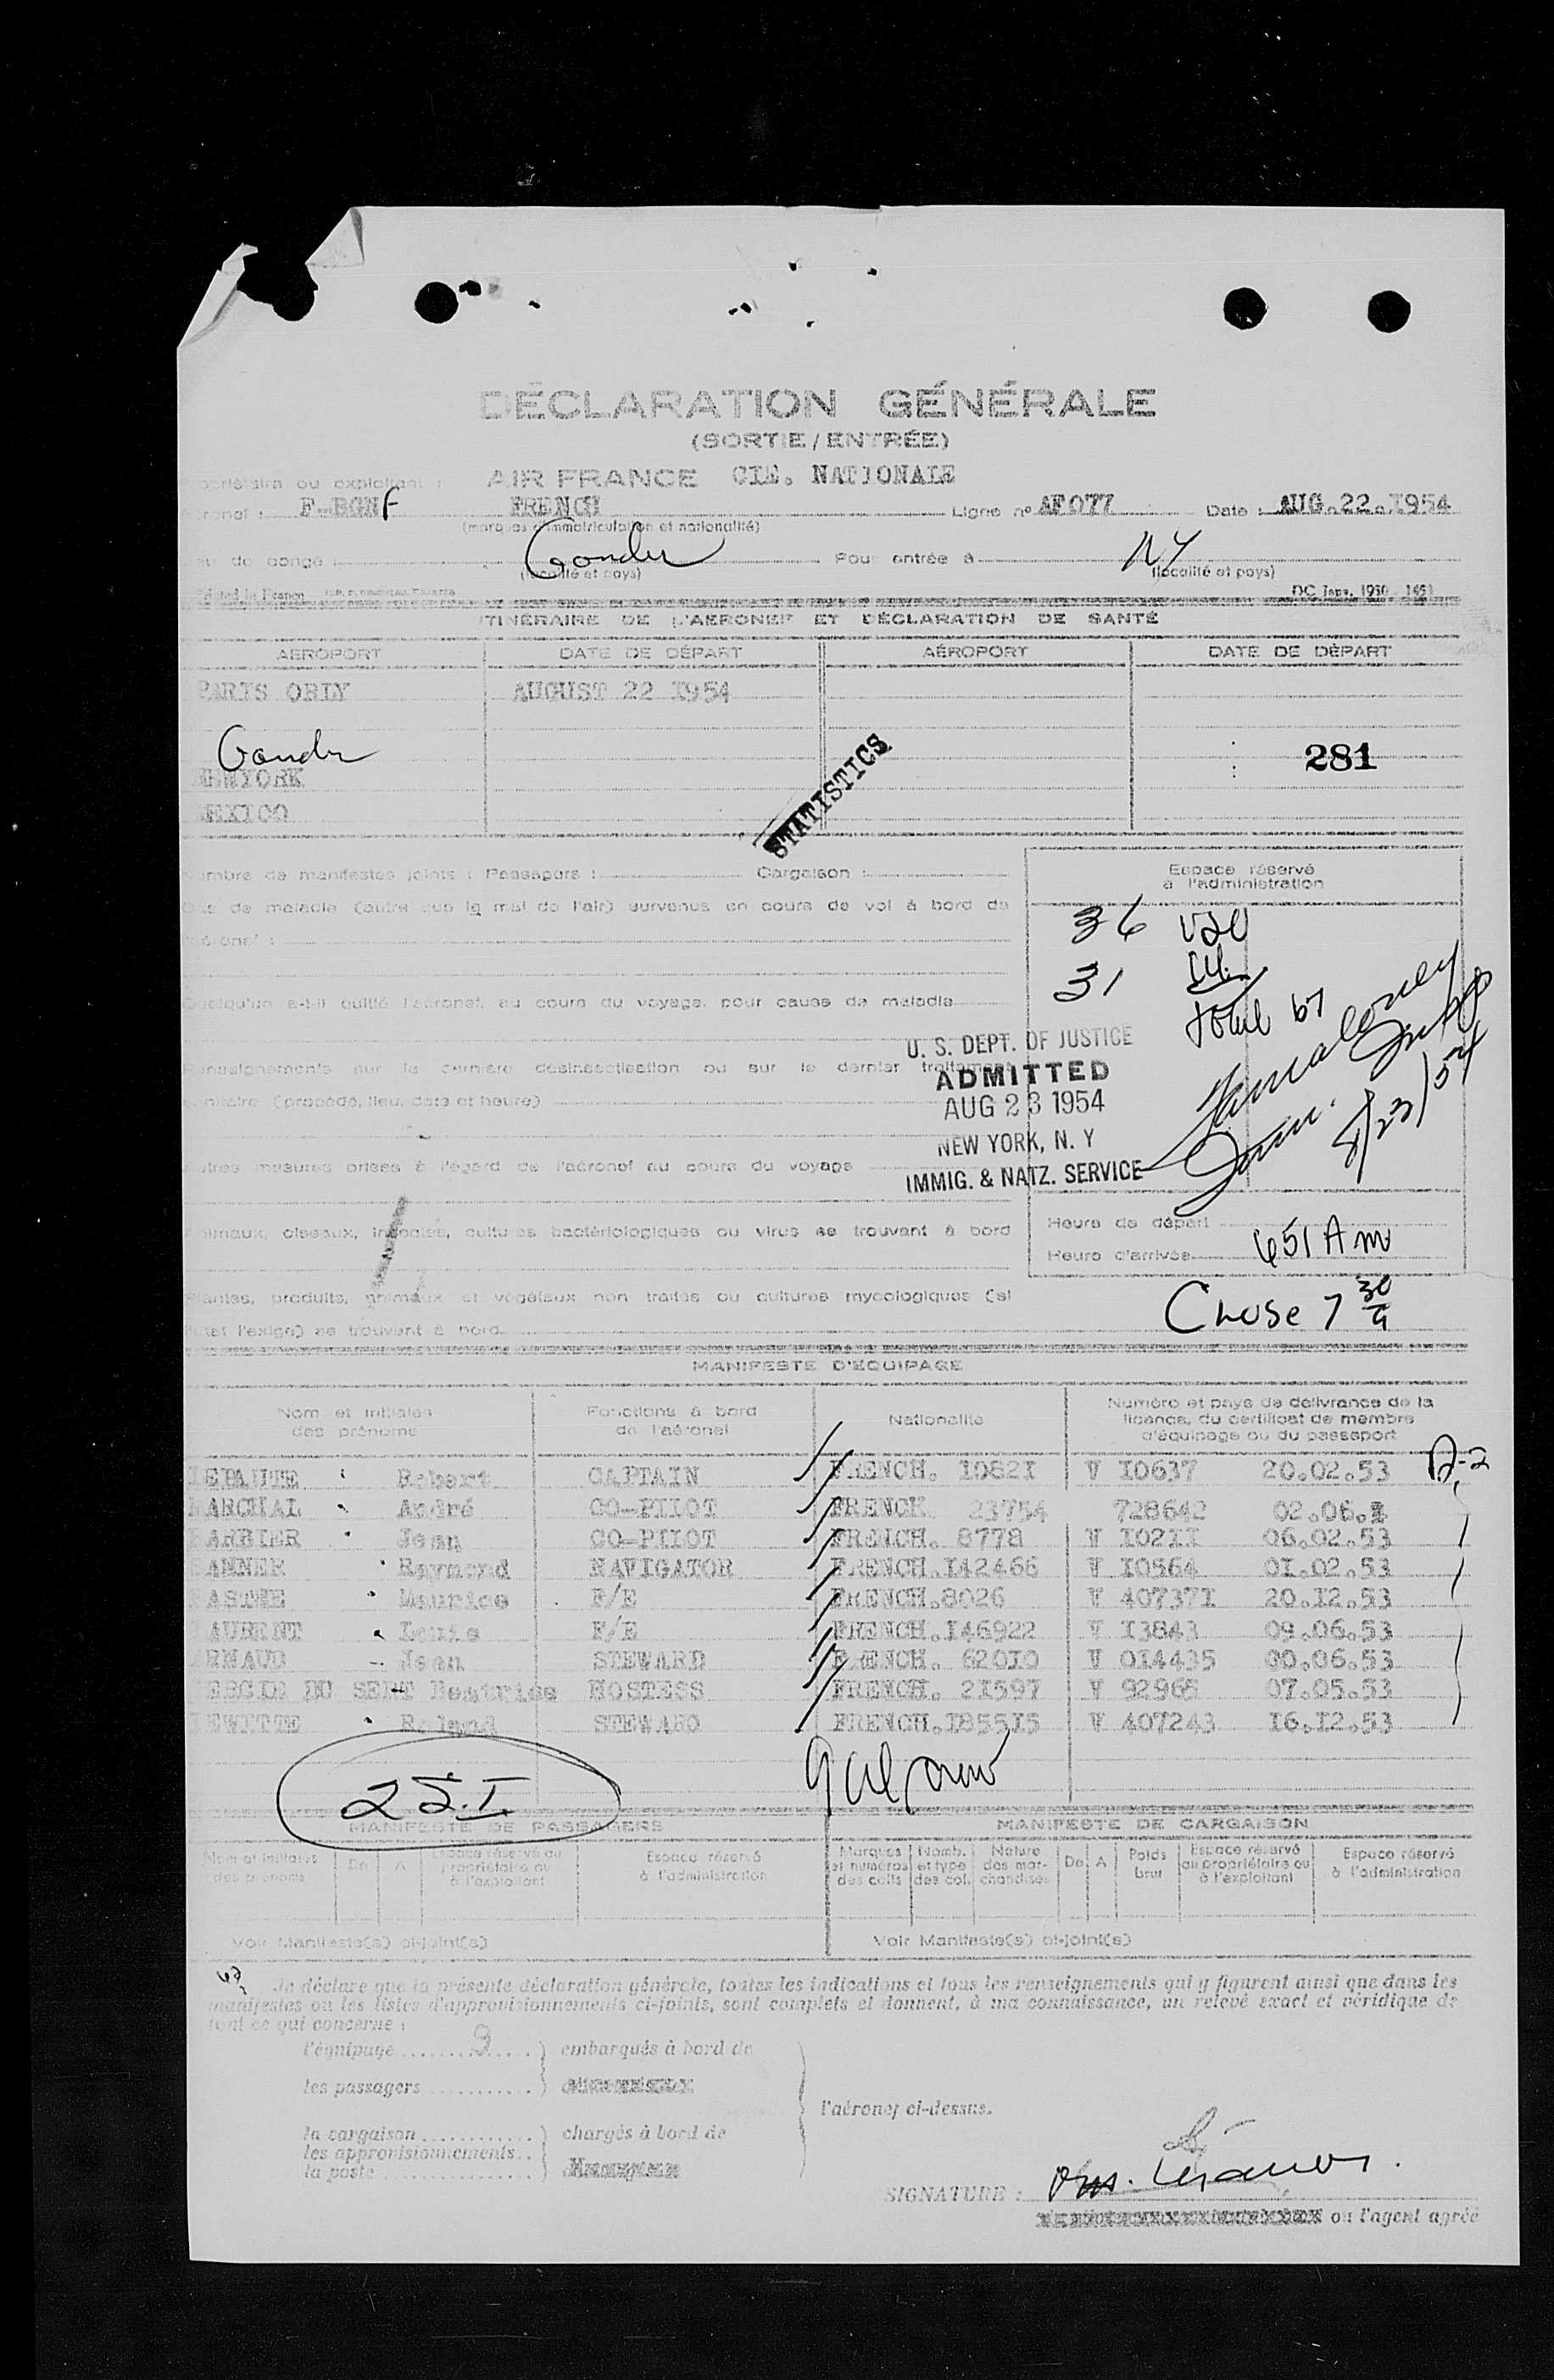 DÉCLARATION GÉNÉRALE
(SORTIE/ENTRÉE)
ropriétaire ou exploitant : AIR FRANCE CIE. NATIONALE
éronef : F-BGNF FRENCH Ligne n° AF 077 Date : AUG.22.I954
(marques d'immatriculation et nationalité)
eu de congé : Gander Pour entrée à NY
(localité et pays) (localité et pays)
Printed in France
ITINÉRAIRE DE L'AÉRONEF ET DÉCLARATION DE SANTÉ
AÉROPORT DATE DE DÉPART AÉROPORT DATE DE DÉPART
PARIS ORLY AUGUST 22 I954
Gander
281
NEWYORK
MEXICO
STATISTICS
Nombre de manifestes joints : Passagers : Cargaison :
Espace réservé
à l'administration
Cas de maladie (autre que le mal de l'air) survenus en cours de vol à bord de
l'aéronef :
36 USC
31
total 67
Quelqu'un a-t-il quitté l'aéronef, au cours du voyage, pour cause de maladie
U. S. DEPT. OF JUSTICE
ADMITTED
AUG 23 1954
NEW YORK, N. Y
IMMIG. & NATZ. SERVICE
8/23/54
Renseignements sur la dernière désinsectisation ou sur le dernier traitement
sanitaire (procédé, lieu, date et heure)
Autres mesures prises à l'égard de l'aéronef au cours du voyage
Animaux, oiseaux, insectes, cultures bactériologiques ou virus se trouvant à bord
Heure de départ
Heure d'arrivée 651 Am
Plantes, produits, animaux et végétaux non traités ou cultures mycologiques (si
l'état l'exige) se trouvant à bord
7 30
MANIFESTE D'ÉQUIPAGE
Nom et initiales des prénoms
Fonctions à bord de l'aéronef
Nationalité
Numéro et pays de délivrance de la licence, du certificat de membre d'équipage ou du passeport
LEPAUTE Robert CAPTAIN FRENCH. I082I V I0637 20.02.53 D-2
MARCHAL André CO-PILOT FRENCH 23754 728642 02.06.
BARBIER Jean CO-PILOT FRENCH. 8778 V I02II 06.02.53
ANNER Raymond NAVIGATOR FRENCH.I42466 V I0564 0I.02.53
ASTHE Maurice F/E FRENCH.8026 V 40737I 20.I2.53
LAURENT Louis F/E FRENCH.I46922 V I3843 09.06.53
ARNAUD Jean STEWARD FRENCH. 620I0 V 0I4435 00.06.53
DU SERT Beatrice HOSTESS FRENCH. 2I597 V 92965 07.05.53
DEWITTE Roland STEWARD FRENCH.I855I5 V 407243 I6.I2.53
MANIFESTE DE PASSAGERS MANIFESTE DE CARGAISON
Nom et initiales des prénoms
De
A
Espace réservé au propriétaire ou à l'exploitant
Espace réservé à l'administration
Marques et numéros des colis
Nomb. et type des col.
Nature des marchandises
De
A
Poids brut
Espace réservé au propriétaire ou à l'exploitant
Espace réservé à l'administration
Voir Manifeste(s) ci-joint(s) Voir Manifeste(s) ci-joint(s)
Je déclare que la présente déclaration générale, toutes les indications et tous les renseignements qui y figurent ainsi que dans les
manifestes ou les listes d'approvisionnements ci-joints, sont complets et donnent, à ma connaissance, un relevé exact et véridique de
tout ce qui concerne :
l'équipage 9 embarqués à bord de
les passagers
l'aéronef ci-dessus.
la cargaison chargés à bord de
les approvisionnements
la poste
SIGNATURE :
ou l'agent agréé